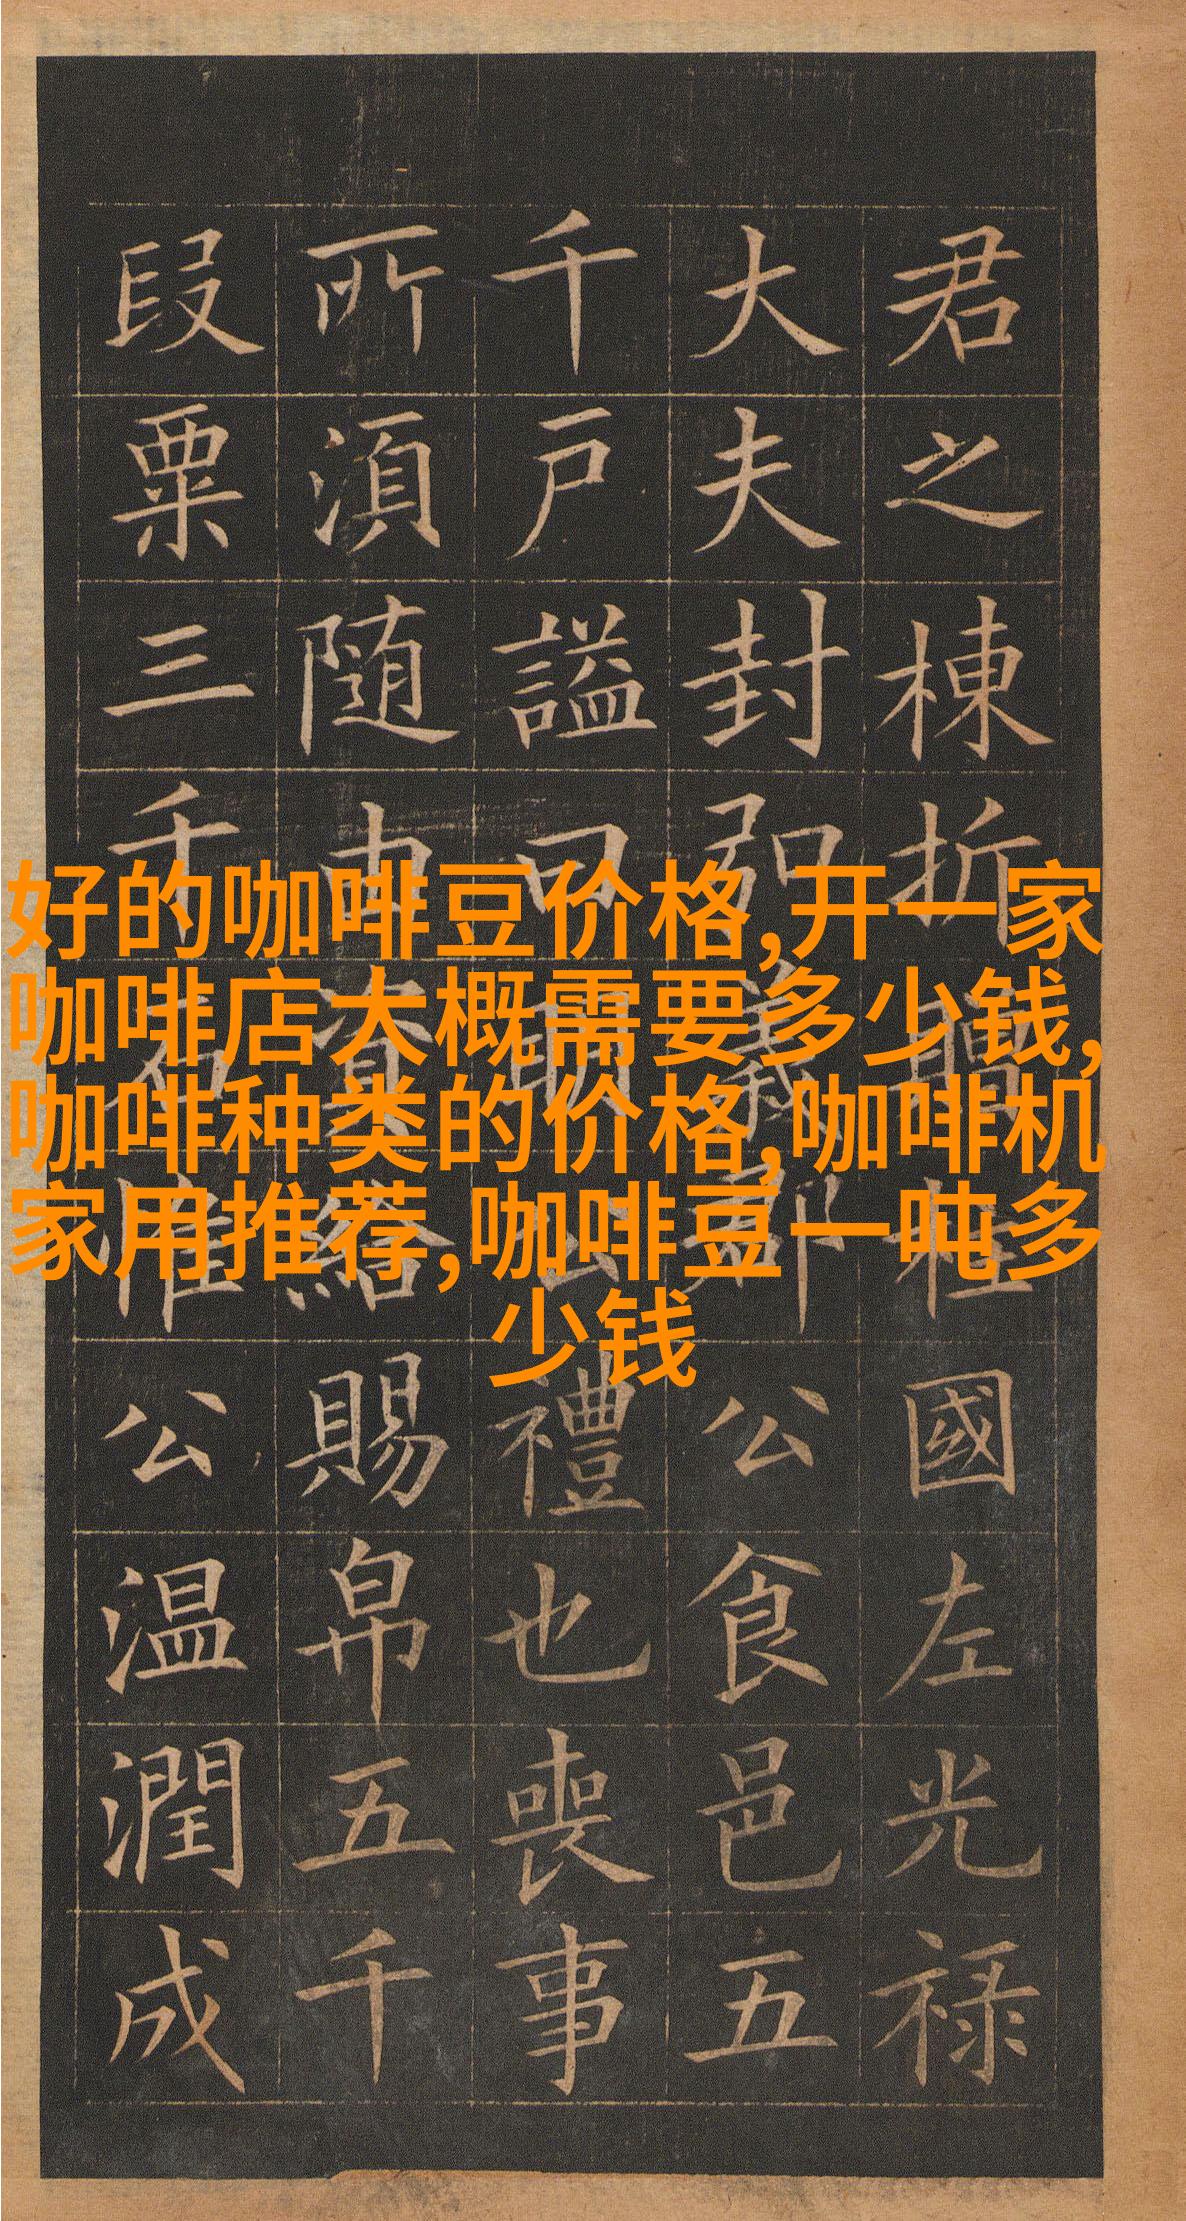 君之棟折贈柱國左光禄
大夫封弘義郡公食邑五
千戸謚曰公禮也喪事
所湏随由資給賜帛五千
段粟三千石惟公温潤成
好的咖啡豆价格,开一家
咖啡店大概需要多少钱,
咖啡种类的价格,咖啡机
家用推荐,咖啡豆一吨多
少钱